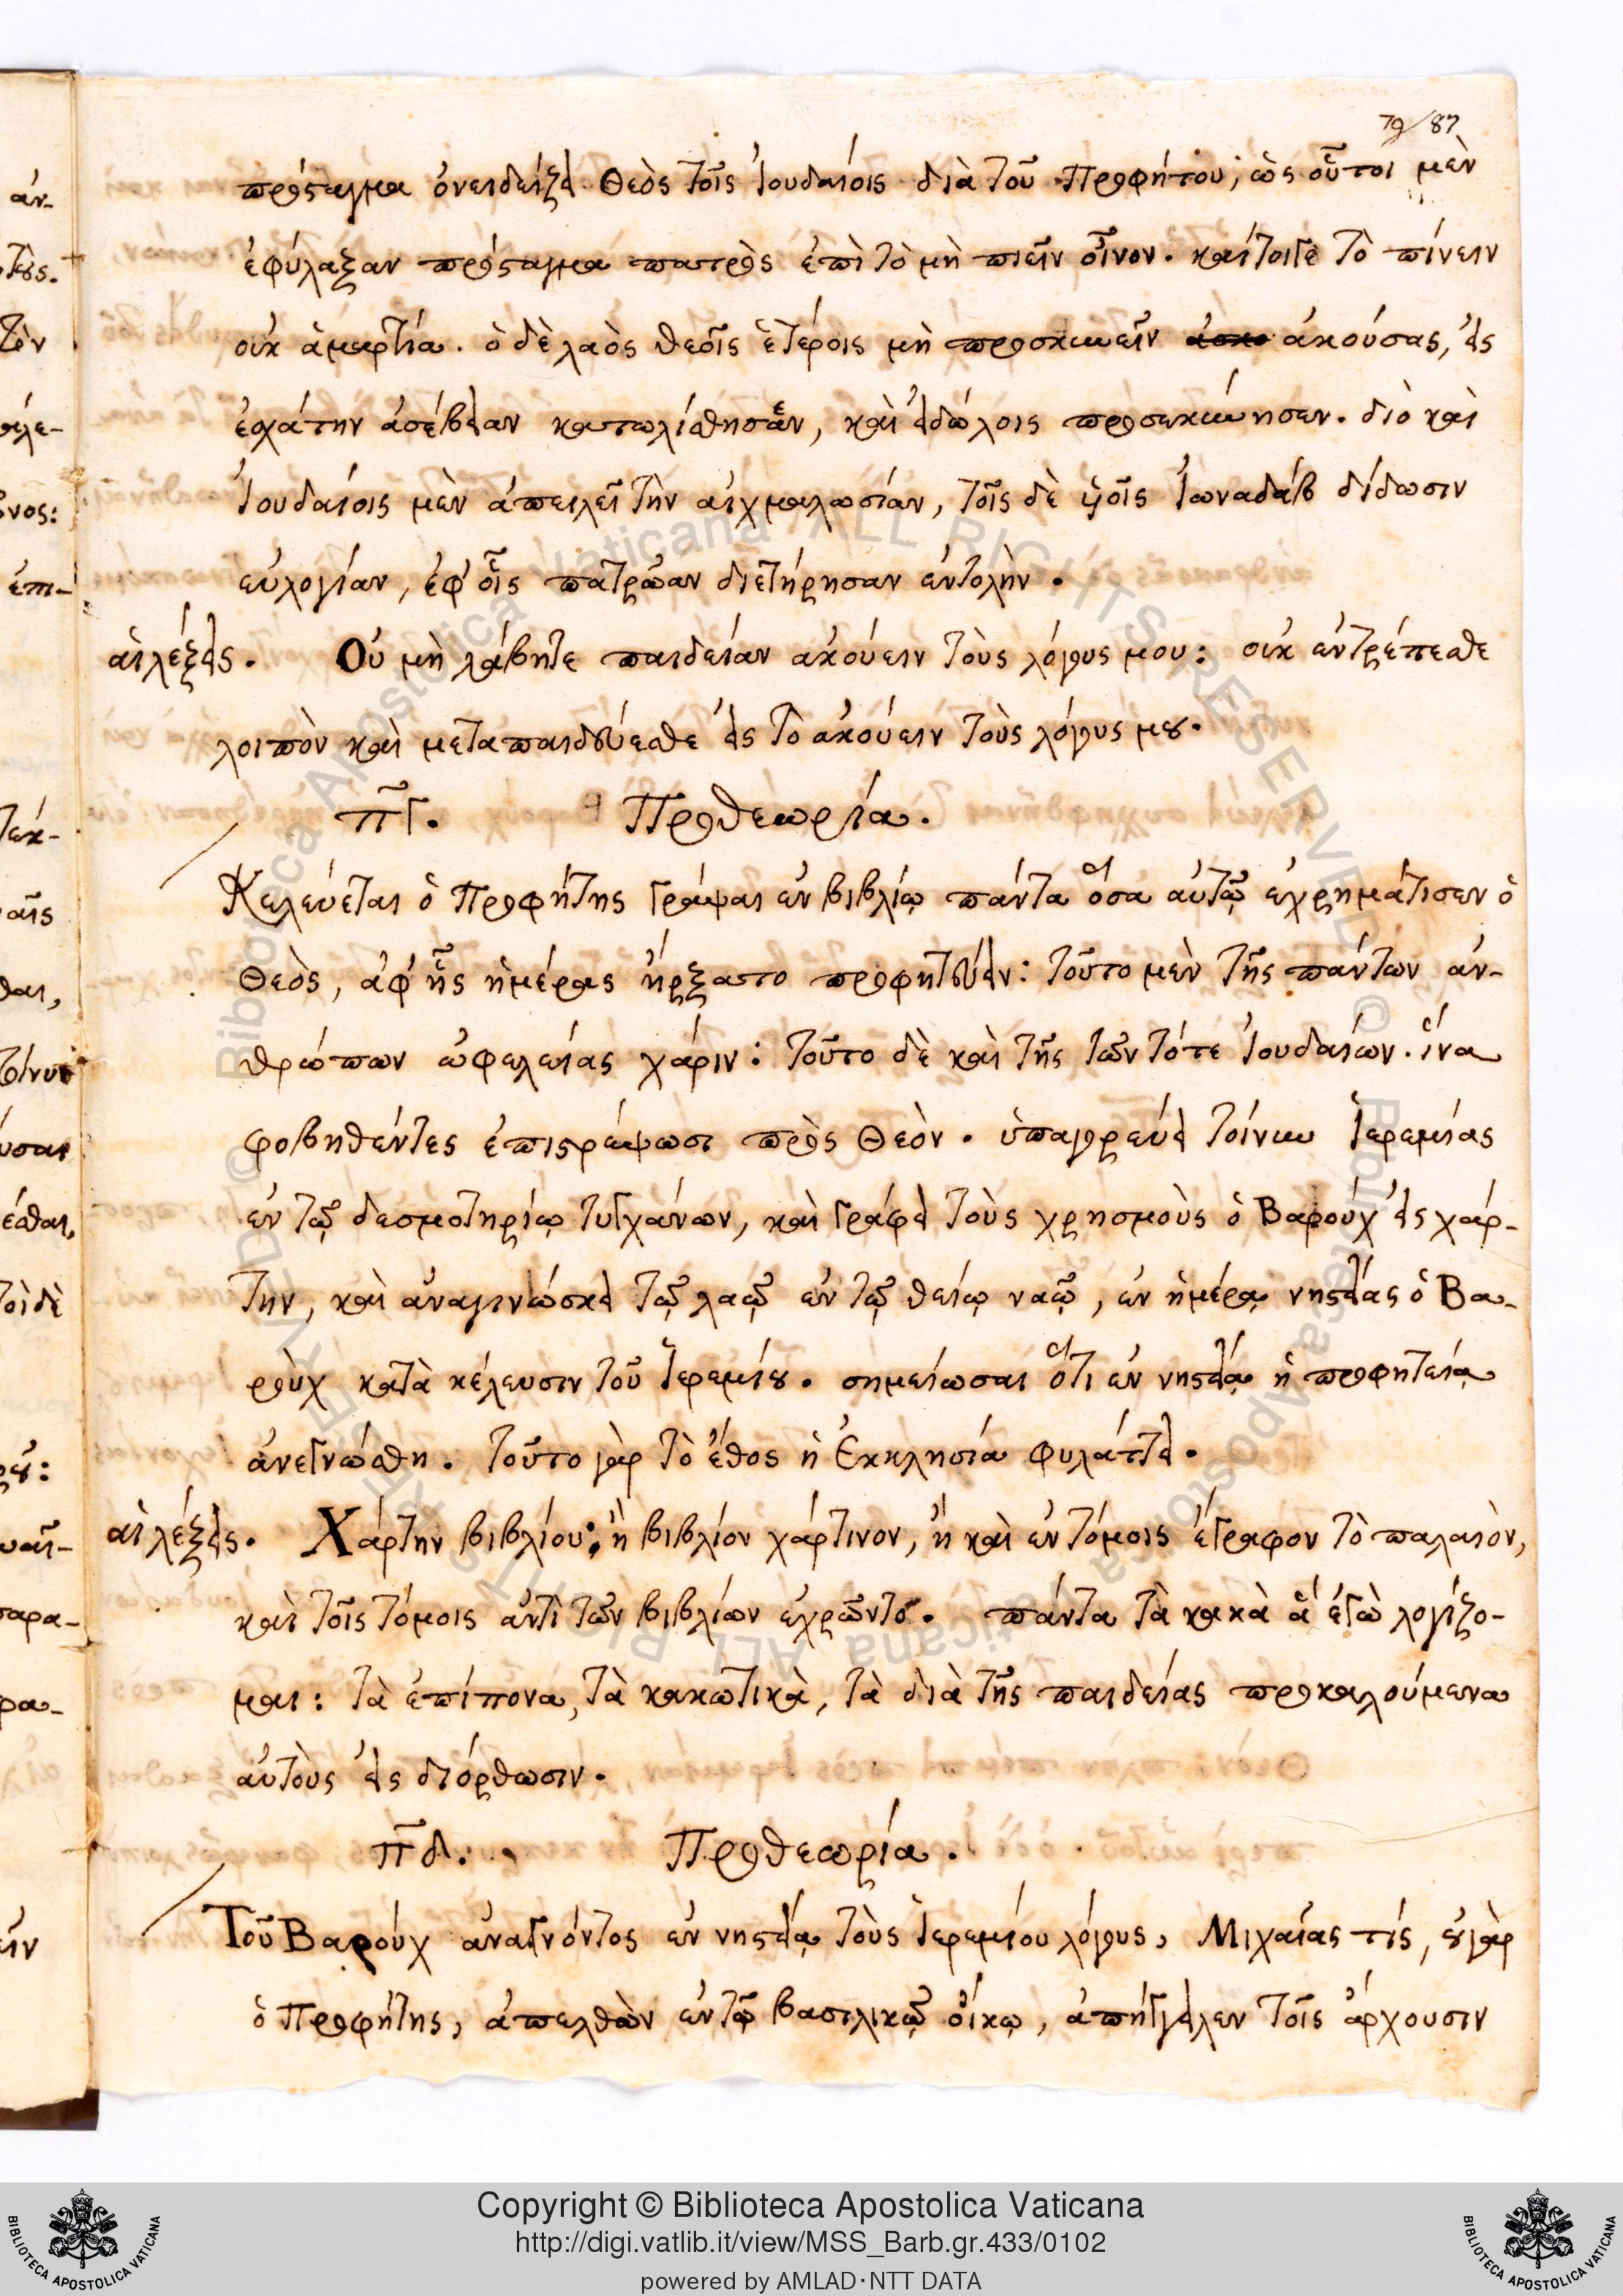 79/87
πρόσταγμα ὀνειδείζει Θεὸς τοῖς Ἰουδαίοις διὰ τοῦ Προφήτου, ὡς οὗτοι μὲν
ἐφύλαξαν πρόσταγμα πατρὸς ἐπὶ τὸ μὴ πιεῖν οἶνον. καίτοιγε τὸ πίνειν
οὐκ ἁμαρτία. ὁ δὲ λαὸς θεοῖς ἑτέροις μὴ προσκυνεῖν ἀκούσας, εἰς
ἐσχάτην ἀσέβειαν κατωλίσθησεν, καὶ εἰδώλοις προσεκύνησεν. διὸ καὶ
Ἰουδαίοις μὲν ἀπειλεῖ τὴν αἰχμαλωσίαν, τοῖς δὲ ὑιοῖς Ἰωναδάβ δίδωσιν
εὐλογίαν, ἐφ' οἷς πατρῴαν διετήρησαν ἐντολὴν.
αἱ λέξεις. Οὐ μὴ λάβητε παιδείαν ἀκούειν τοὺς λόγους μου: οὐκ ἐντρέπεσθε
λοιπὸν καὶ μεταπαιδεύεσθε εἰς τὸ ἀκούειν τοὺς λόγους μου.
πγ. Προθεωρία.
Κελεύεται ὁ Προφήτης γράψαι ἐν βιβλίῳ πάντα ὅσα αὐτῷ ἐχρημάτισεν ὁ
Θεὸς, ἀφ' ἧς ἡμέρας ἤρξατο προφητεύειν: τοῦτο μὲν τῆς πάντων ἀν-
θρώπων ὠφελείας χάριν: τοῦτο δὲ καὶ τῆς τῶν τότε Ἰουδαίων. ἵνα
φοβηθέντες ἐπιστρέψωσι πρὸς Θεὸν. ὑπαγορεύει τοίνυν Ἱερεμίας
ἐν τῷ δεσμοτηρίῳ τυγχάνων, καὶ γράφει τοὺς χρησμοὺς ὁ Βαρούχ εἰς χάρ-
την, καὶ ἀναγινώσκει τῷ λαῷ ἐν τῷ θείῳ ναῷ, ἐν ἡμέρᾳ νηστείας ὁ Βα-
ροὺχ κατὰ κέλευσιν τοῦ Ἱερεμίου. σημείωσαι ὅτι ἐν νηστείᾳ ἡ προφητεία
ἀνεγνώσθη. τοῦτο γὰρ τὸ ἔθος ἡ Ἐκκλησία φυλάττει.
αἱ λέξεις. Χάρτην βιβλίου: ἢ βιβλίον χάρτινον, ἢ καὶ ἐν τόμοις ἔγραφον τὸ παλαιὸν,
καὶ τοῖς τόμοις ἀντὶ τῶν βιβλίων ἐχρῶντο. πάντα τὰ κακὰ ἃ ἐγὼ λογίζο-
μαι: τὰ ἐπίπονα, τὰ κακωτικὰ, τὰ διὰ τῆς παιδείας προκαλούμενα
αὐτοὺς εἰς διόρθωσιν.
πδ. Προθεωρία.
Τοῦ Βαρούχ ἀναγνόντος ἐν νηστείᾳ τοὺς Ἱερεμίου λόγους, Μιχαίας τίς, οὐ γὰρ
ὁ Προφήτης, ἀπελθὼν ἐν τῷ βασιλικῷ οἴκῳ, ἀπήγγειλεν τοῖς ἄρχουσιν
Copyright © Biblioteca Apostolica Vaticana
http://digi.vatlib.it/view/MSS_Barb.gr.433/0102
powered by AMLAD·NTT DATA
BIBLIOTECA APOSTOLICA VATICANA
BIBLIOTECA APOSTOLICA VATICANA